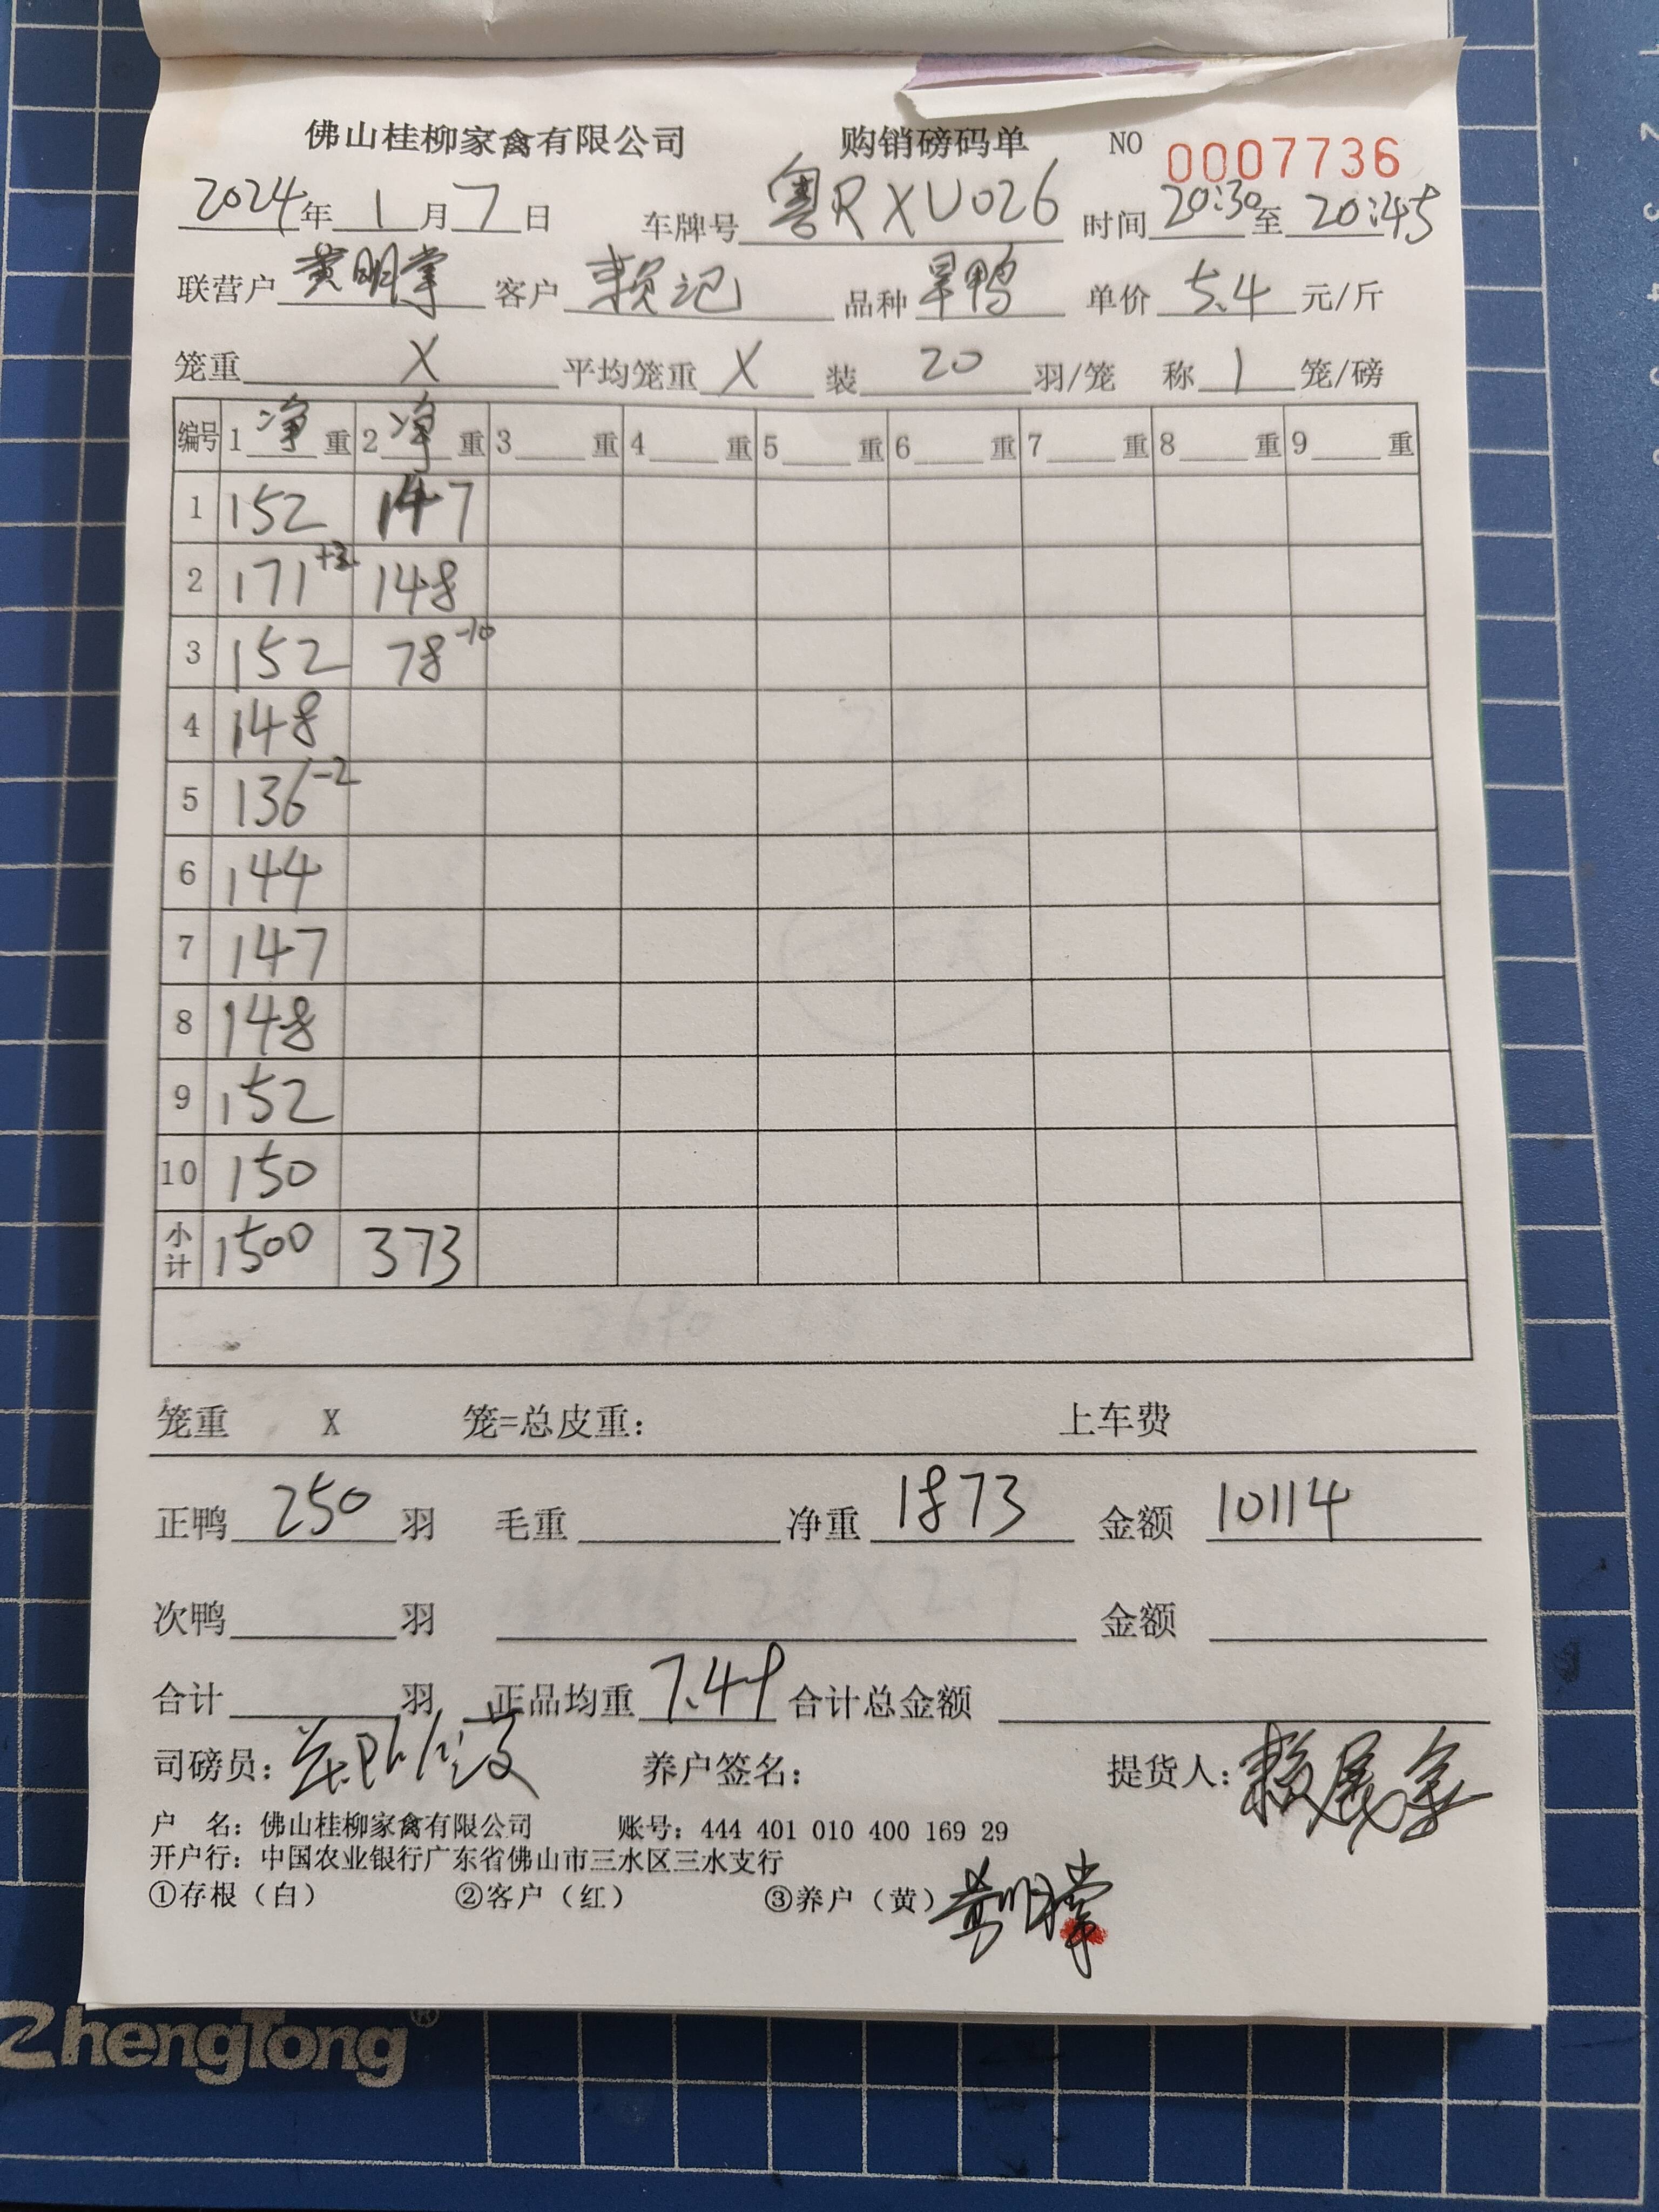 佛山桂柳家禽有限公司 购销磅码单 NO 0007736
2024年1月7日 车牌号 粤RXU026 时间 20:30至20:45
联营户 黄明掌 客户 赖记 品种 旱鸭 单价 5.4 元/斤
笼重 X 平均笼重 X 装 20 羽/笼 称 1 笼/磅
编号 1 净 重 2 净 重 3 重 4 重 5 重 6 重 7 重 8 重 9 重
1 152 147
2 171+3 148
3 152 78-10
4 148
5 136-2
6 144
7 147
8 148
9 152
10 150
小计 1500 373
笼重 X 笼=总皮重: 上车费
正鸭 250 羽 毛重 净重 1873 金额 10114
次鸭 羽 金额
合计 羽 正品均重 7.49 合计总金额
司磅员: 养户签名: 提货人:
户 名: 佛山桂柳家禽有限公司 账号: 444 401 010 400 169 29
开户行: 中国农业银行广东省佛山市三水区三水支行
①存根（白） ②客户（红） ③养户（黄） 黄明掌
ZhengTong®